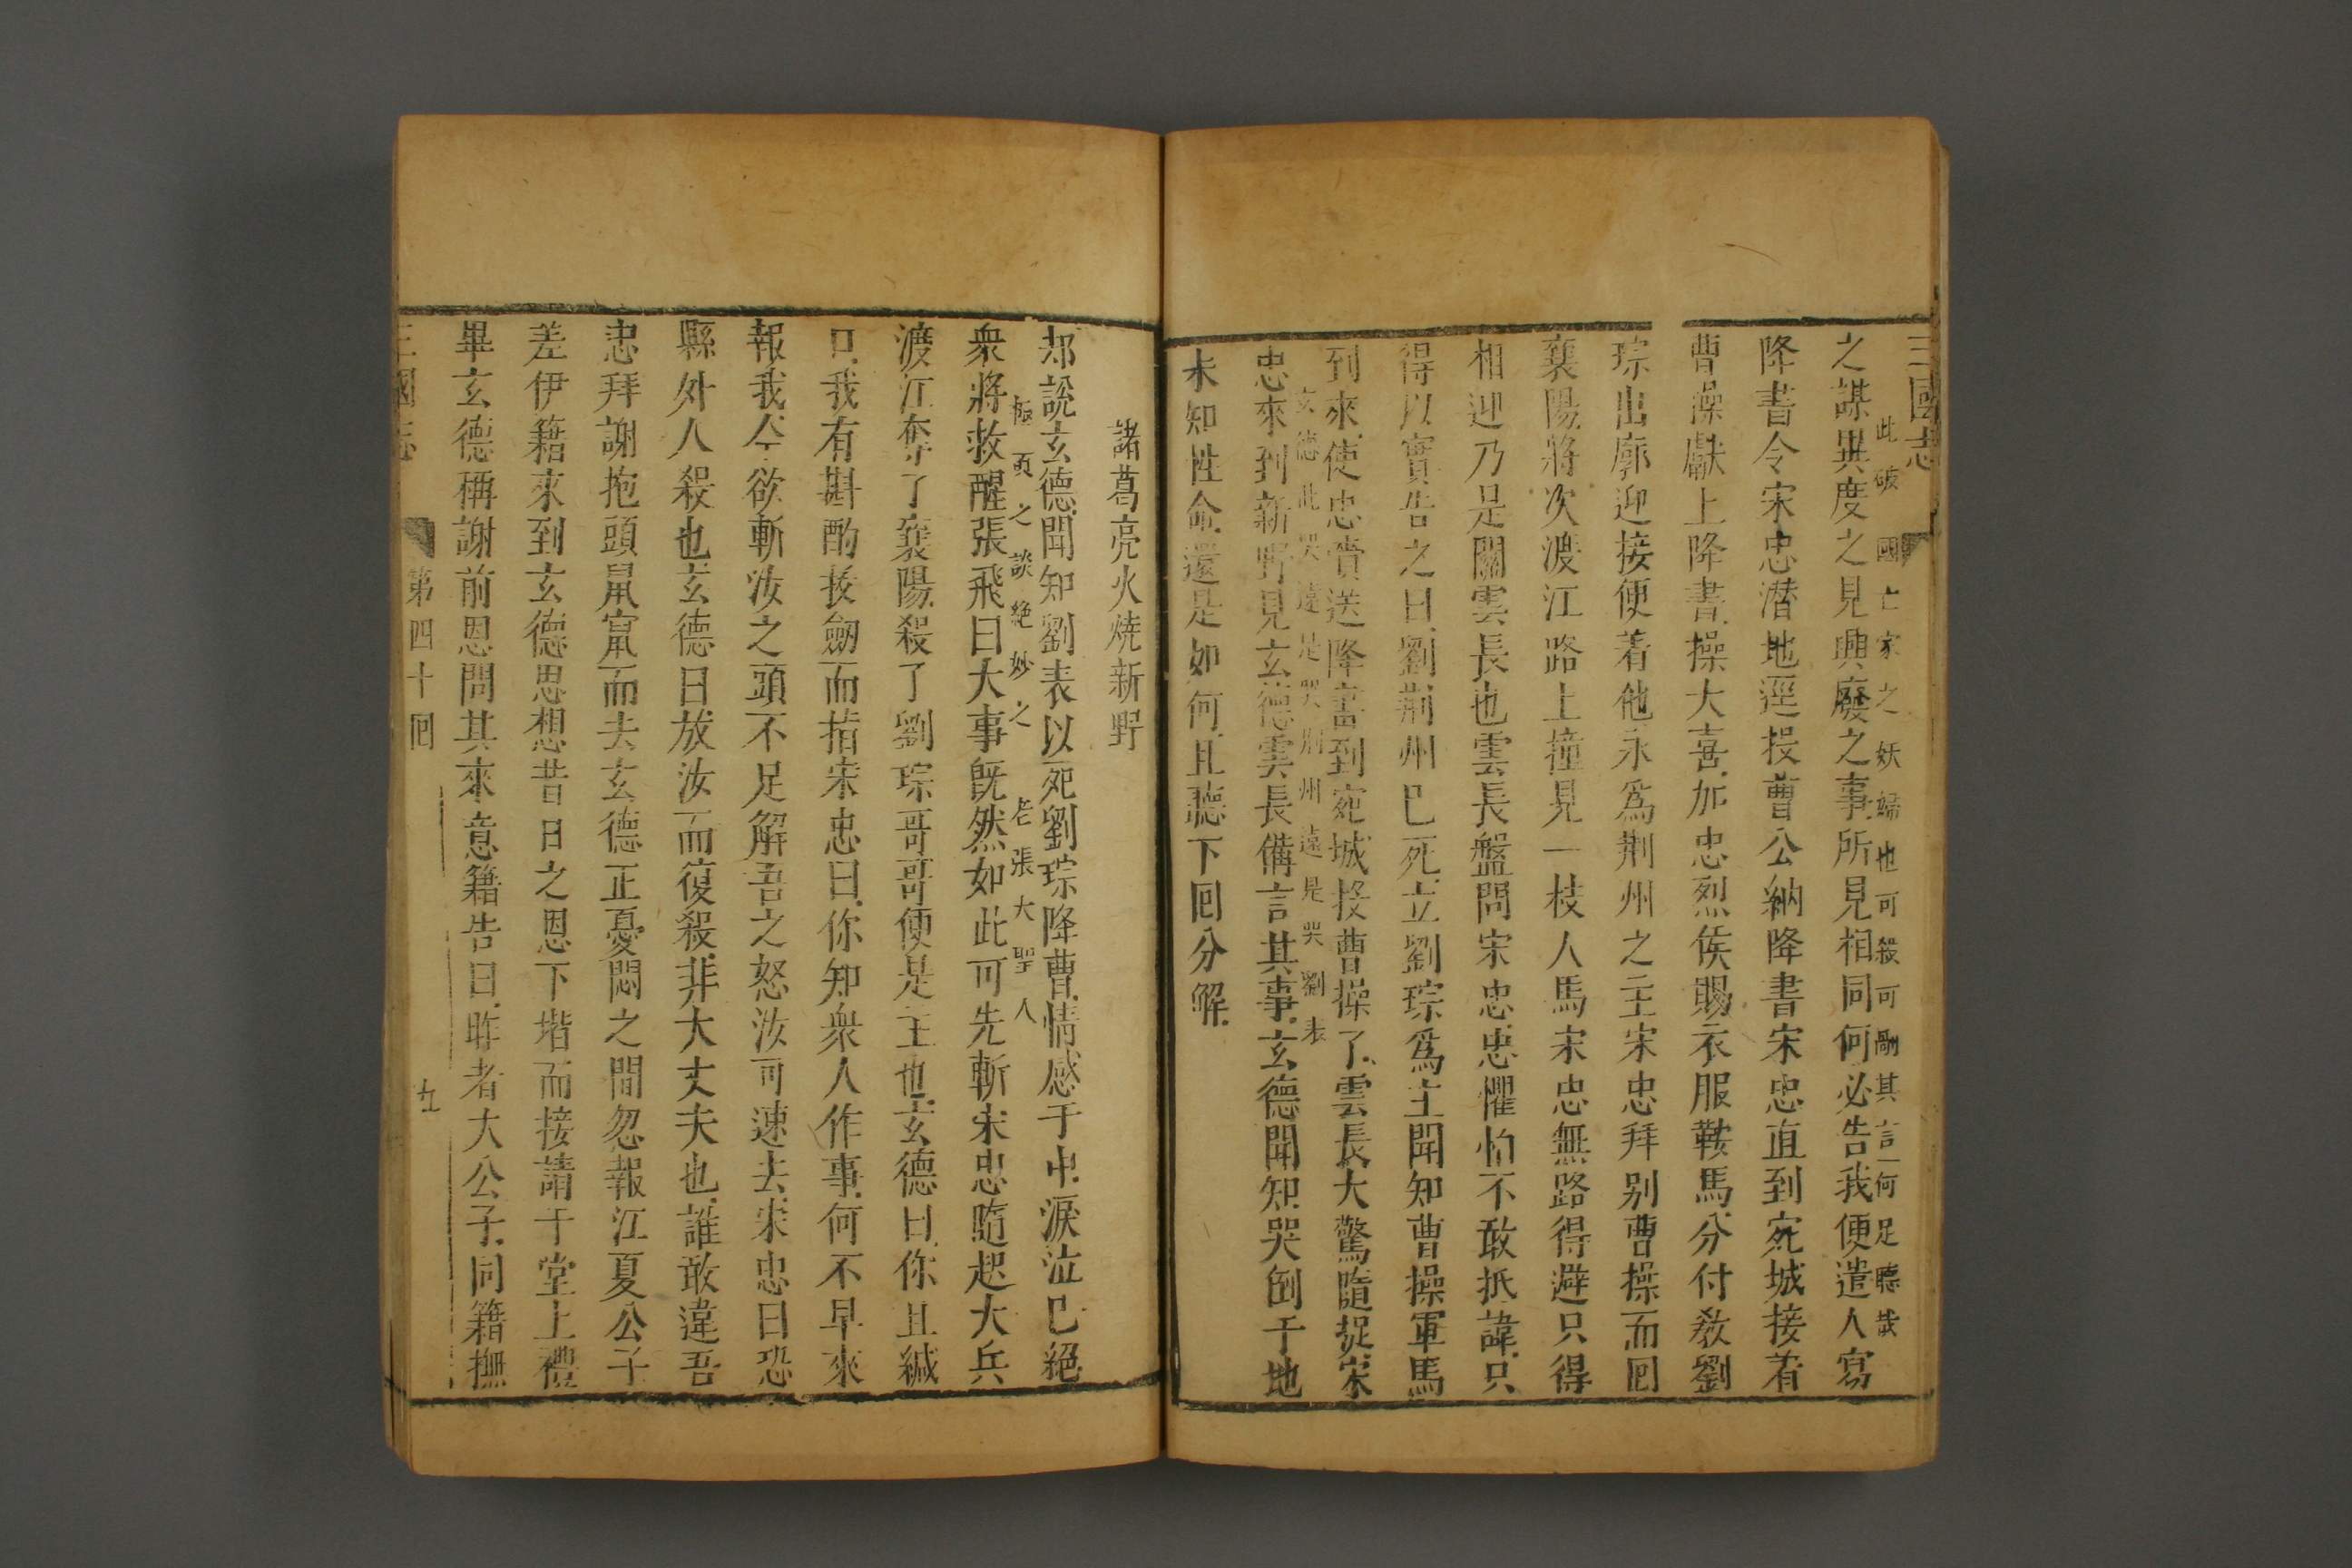 三國志
此破國亡家之妖婦也可殺可剮其言何足聽哉
之謀異度之見興廢之事所見相同何必告我便遣人寫
降書令宋忠潜地逕投曹公納降書宋忠直到宛城接着
曹操獻上降書操大喜加忠烈侯賜衣服鞍馬分付教劉
琮出廓迎接便着他永爲荆州之主宋忠拜别曹操而囘
襄陽將次渡江路上撞見一枝人馬宋忠無路得避只得
相迎乃是關雲長也雲長盤問宋忠忠懼怕不敢抵諱只
得以實告之曰劉荆州已死立劉琮爲主聞知曹操軍馬
到來使忠賫送降書到宛城投曹操了雲長大驚隨捉宋
玄德此哭還是哭荆州還是哭劉表
忠來到新野見玄德雲長備言其事玄德聞知哭倒于地
未知性命還是如何且聽下囘分解
諸葛亮火燒新野
却說玄德聞知劉表以死劉琮降曹情感于中淚泣已絕
極頁之談絕妙之 老張大聖人
衆將救醒張飛曰大事旣然如此可先斬宋忠隨起大兵
渡江奪了襄陽殺了劉琮哥哥便是主也玄德曰你且緘
口我有斟酌拔劒而指宋忠曰你知衆人作事何不早來
報我今欲斬汝之頭不足解吾之怒汝可速去宋忠曰恐
縣外人殺也玄德曰放汝而復殺非大丈夫也誰敢違吾
忠拜謝抱頭鼠竄而去玄德正憂悶之間忽報江夏公子
差伊籍來到玄德思想昔日之恩下堦而接請于堂上禮
畢玄德稱謝前恩問其來意籍告曰昨者大公子同籍撫
三國志 第四十囘 九